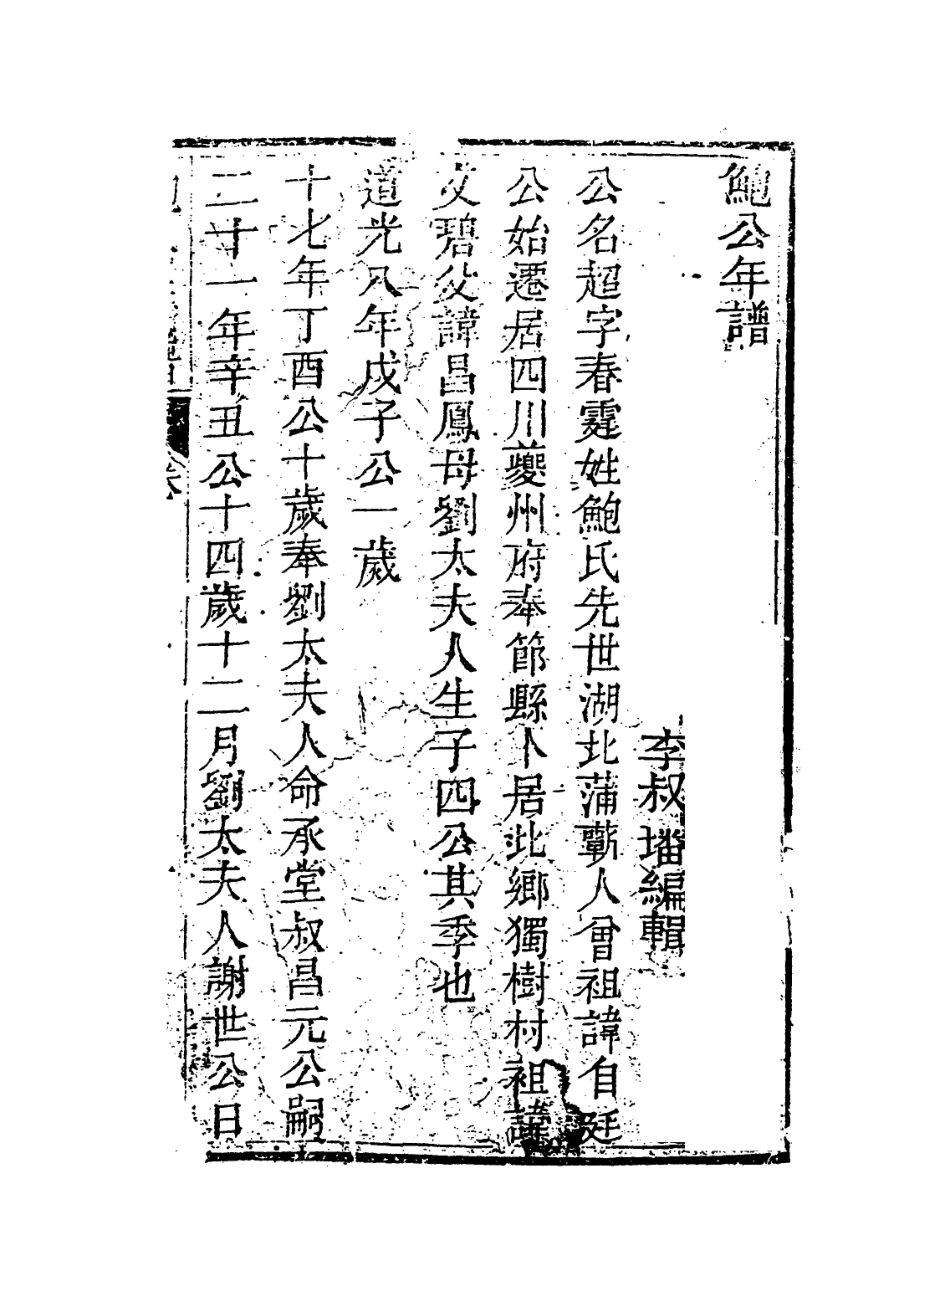 鮑公年譜
李叔璠編輯
公名超字春霆姓鮑氏先世湖北蒲蘄人曾祖諱自廷
公始遷居四川夔州府奉節縣卜居北鄉獨樹村祖諱
文碧父諱昌鳳母劉太夫人生子四公其季也
道光八年戊子公一歲
十七年丁酉公十歲奉劉太夫人命承堂叔昌元公嗣
二十一年辛丑公十四歲十二月劉太夫人謝世公日